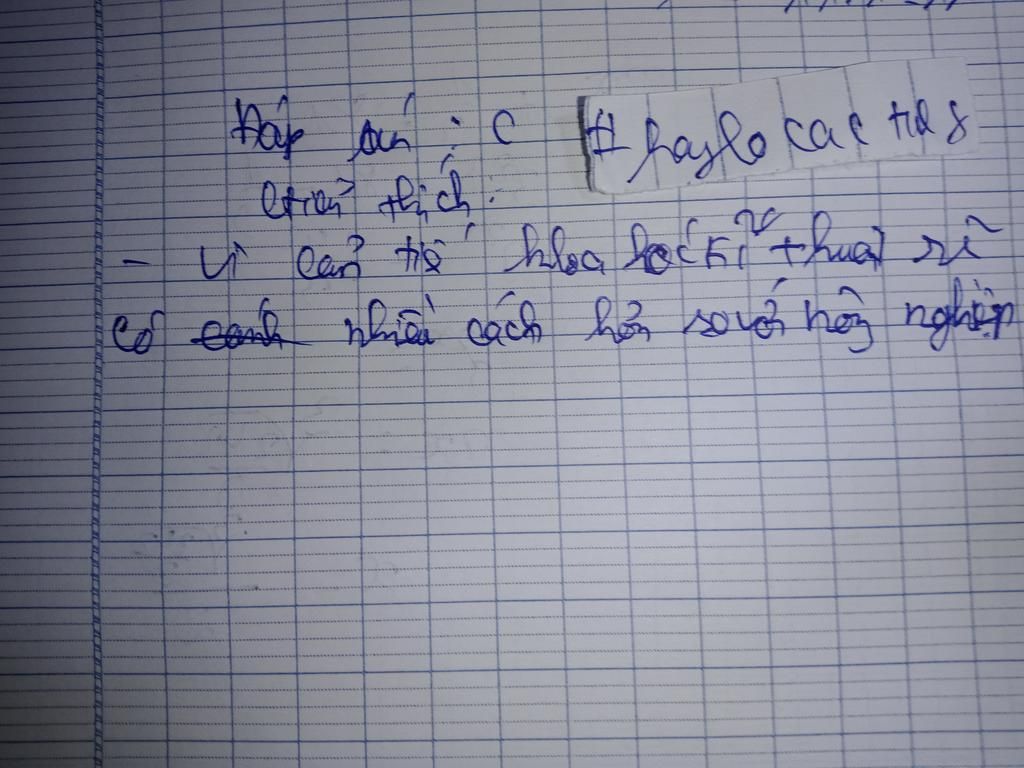 Đáp án : C
# haylocactus
Giải thích :
- Vì cải tiế khoa học kĩ thuật sẽ
có nhiều cách hơn so với nông nghiệp